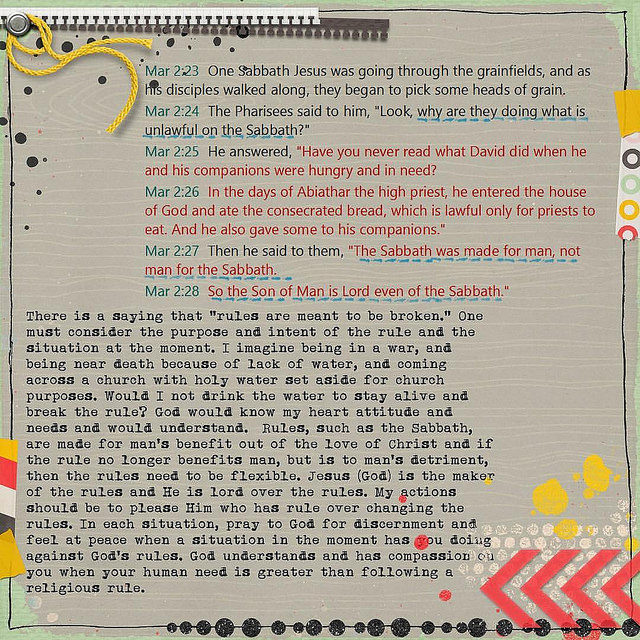 Mar 2:23 One Sabbath Jesus was going through the grainfields, and as
his disciples walked along, they began to pick some heads of grain.
Mar 2:24 The Pharisees said to him, "Look, why are they doing what is
unlawful on the Sabbath?"
Mar 2:25 He answered, "Have you never read what David did when he
and his companions were hungry and in need?
Mar 2:26 In the days of Abiathar the high priest, he entered the house
of God and ate the consecrated bread, which is lawful only for priests to
eat. And he also gave some to his companions."
Mar 2:27 Then he said to them, "The Sabbath was made for man, not
man for the Sabbath.
Mar 2:28 So the Son of Man is Lord even of the Sabbath."
There is a saying that "rules are meant to be broken." One
must consider the purpose and intent of the rule and the
situation at the moment. I imagine being in a war, and
being near death because of lack of water, and coming
across a church with holy water set aside for church
purposes. Would I not drink the water to stay alive and
break the rule? God would know my heart attitude and
needs and would understand. Rules, such as the Sabbath,
are made for man's benefit out of the love of Christ and if
the rule no longer benefits man, but is to man's detriment,
then the rules need to be flexible. Jesus (God) is the maker
of the rules and He is lord over the rules. My actions
should be to please Him who has rule over changing the
rules. In each situation, pray to God for discernment and
feel at peace when a situation in the moment has you doing
against God's rules. God understands and has compassion on
you when your human need is greater than following a
religious rule.